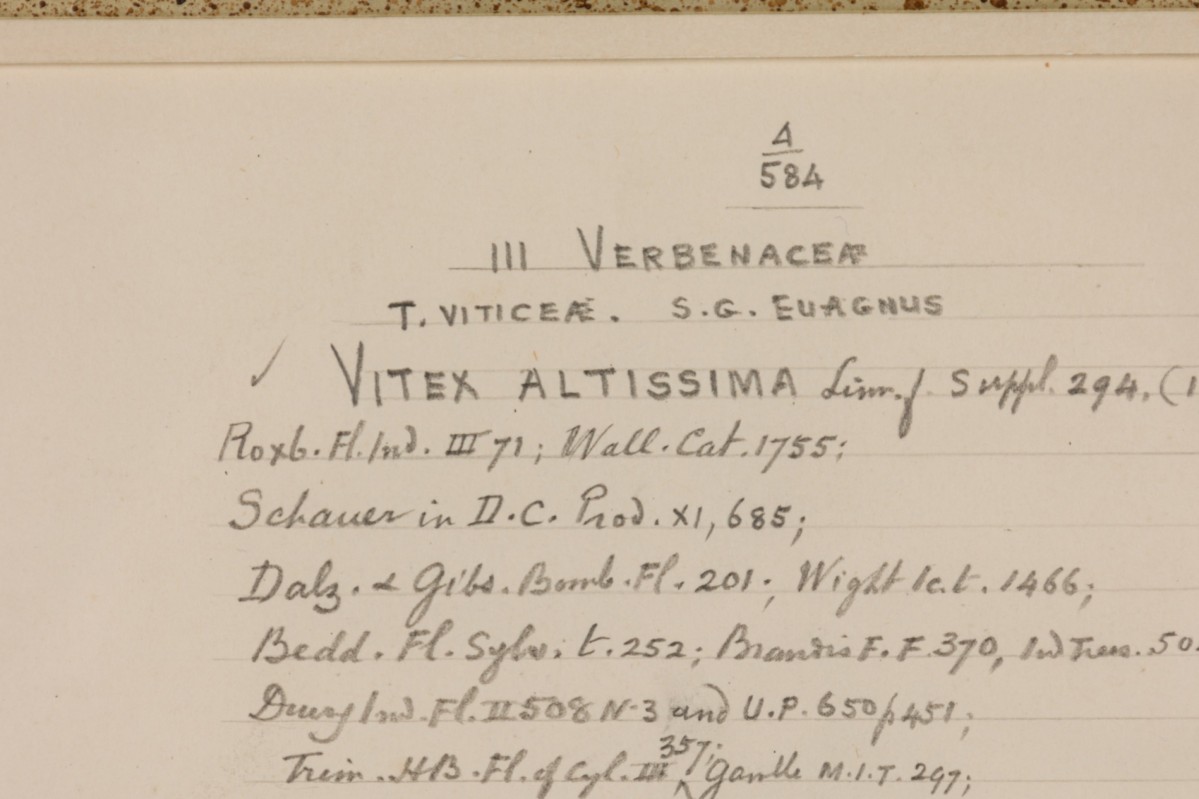 4
584
III VERBENACEÆ
T. VITICEÆ. S.G. EUAGNUS
✓ VITEX ALTISSIMA Linn. f. Suppl. 294. (1
Roxb. Fl. Ind. III 71; Wall. Cat. 1755;
Schauer in D.C. Prod. XI, 685;
Dalz. & Gibs. Bomb. Fl. 201; Wight Ic. t. 1466;
Bedd. Fl. Sylv. t. 252; Brandis F. F. 370, Ind Trees. 50
Drury Ind. Fl. II 508 N-3 and U.P. 650 p 451;
Trim. HB. Fl. of Cyl. III 357; Gamble M.I.T. 297;